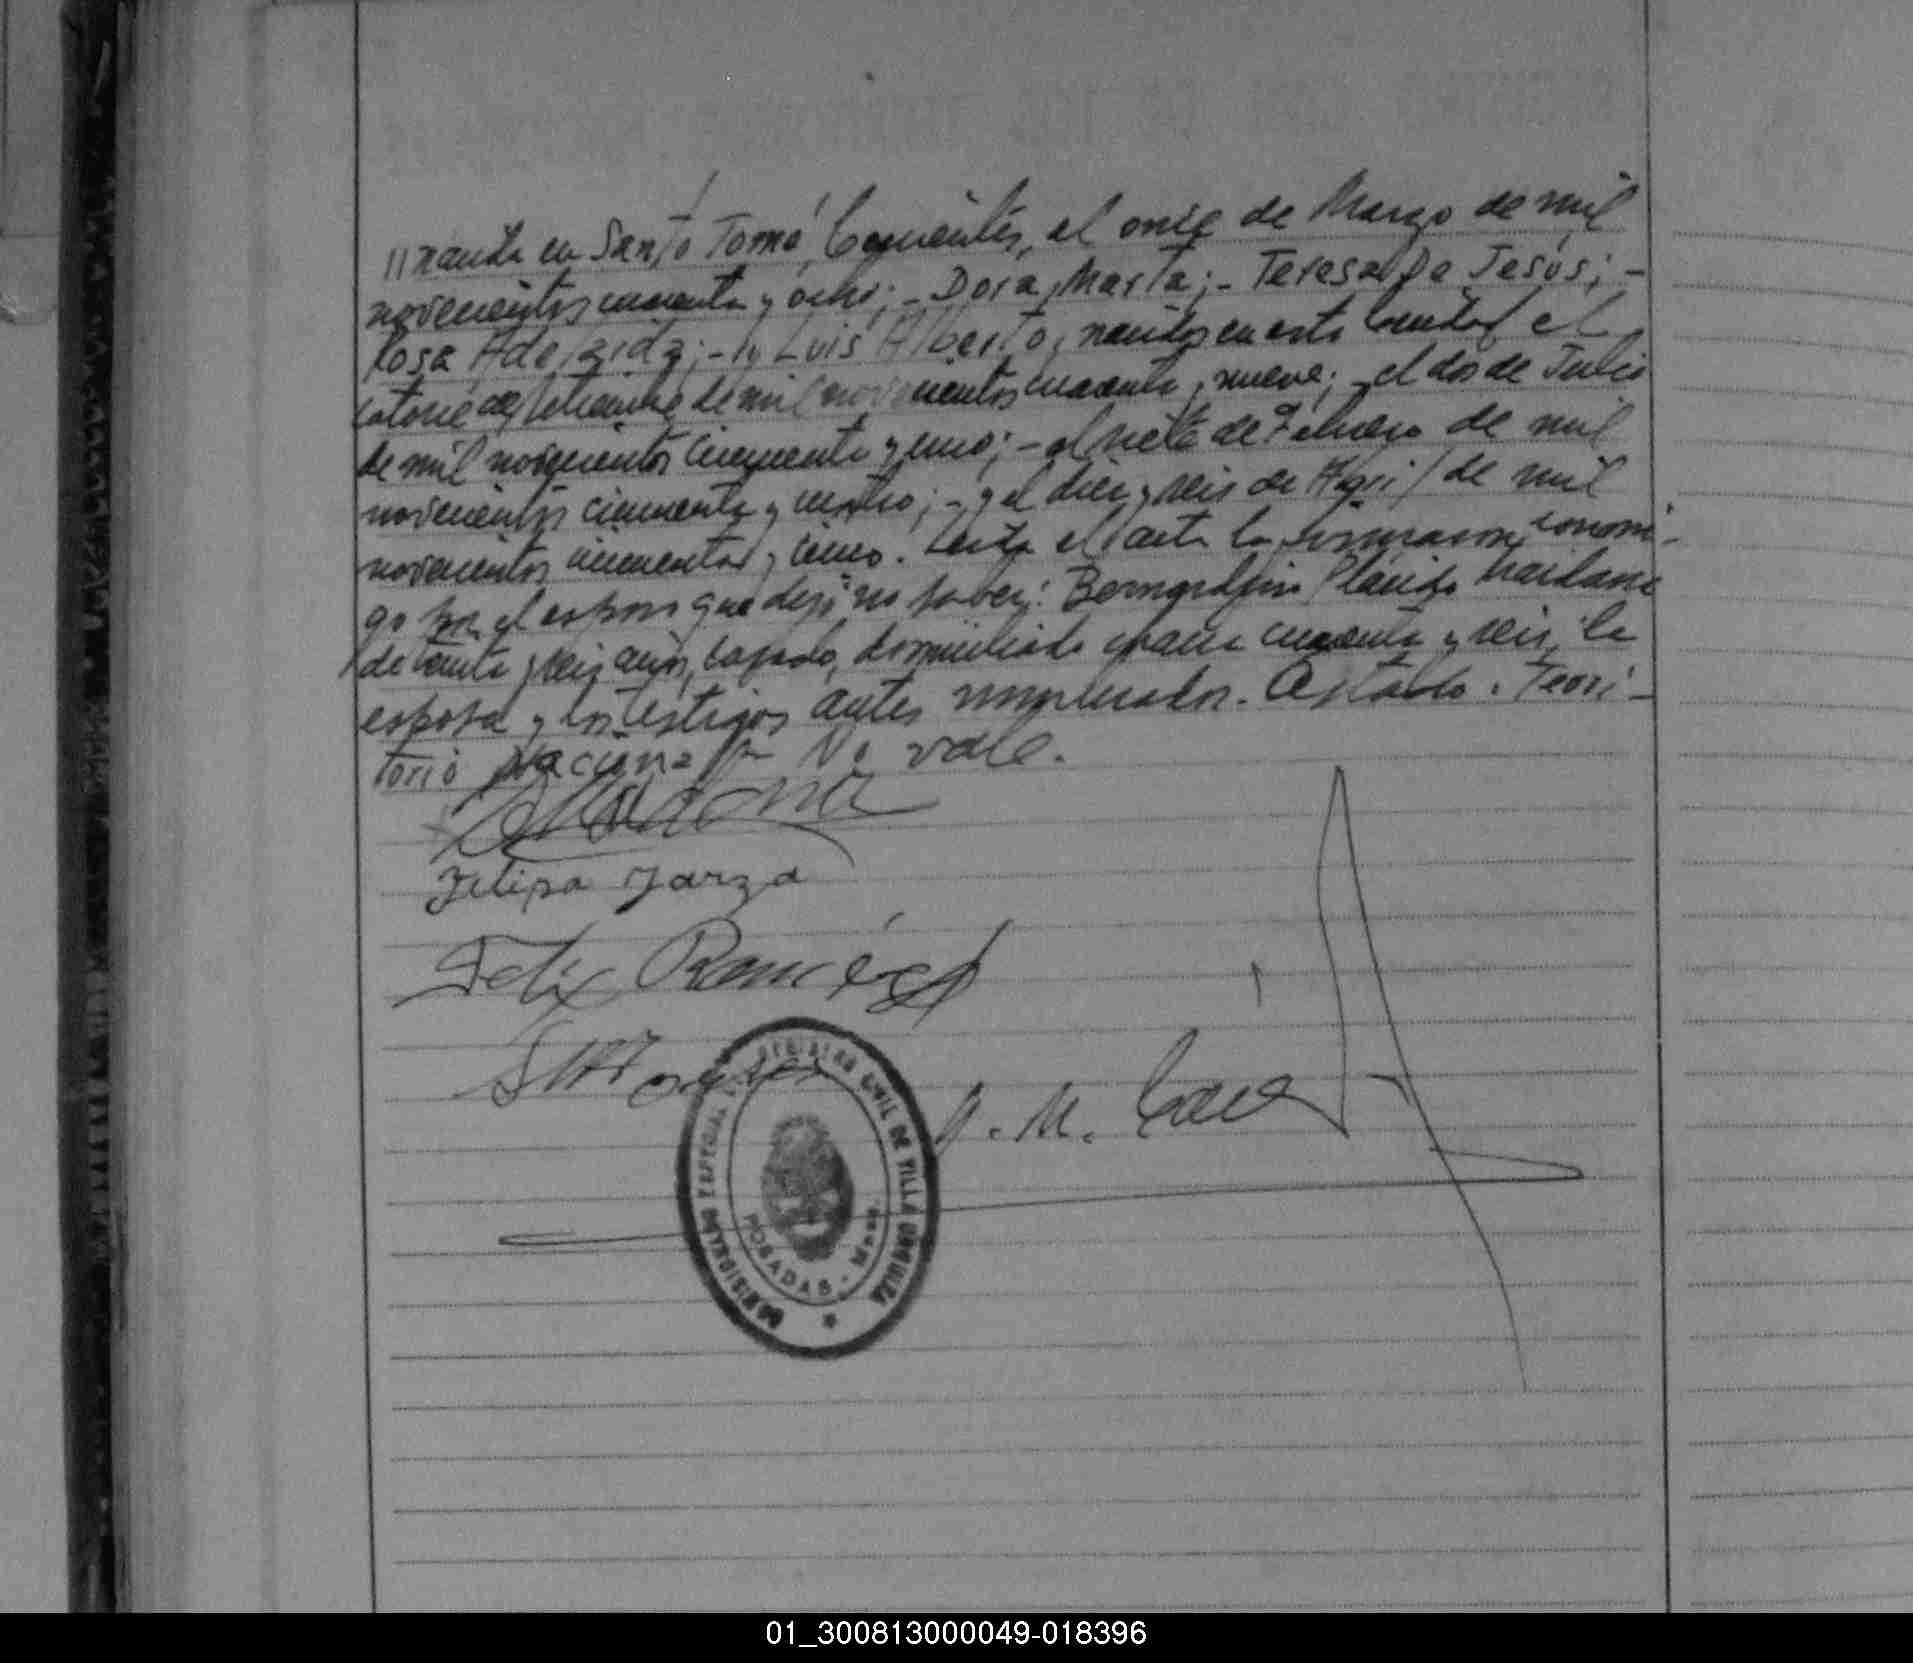 //nacida en Santo Tomé, Corrientes, el once de Marzo de mil
novecientos cuarenta y ocho; - Dora María; - Teresa De Jesús; -
Rosa Adelaida; - y Luis Alberto, nacidos en esta Ciudad el
catorce de Setiembre de mil novecientos cuarenta y nueve; - el dos de Julio
de mil novecientos cincuenta y uno; - el siete de Febrero de mil
novecientos cincuenta y cuatro; - y el diez y seis de Abril de mil
novecientos cincuenta y cinco. Leída el acta la firmaron, conmi-
go por el esposo que dijo no saber: Plácido
de treinta y seis años, casado, domiciliado cuarenta y seis, la
esposa y los testigos antes nombrados. Testado: Terri-
torio Nacional - No vale.
Felipa
Felix Ramírez
REGISTRO CIVIL DE VILLA URQUIZA
POSADAS - Mnes.
01_300813000049-018396